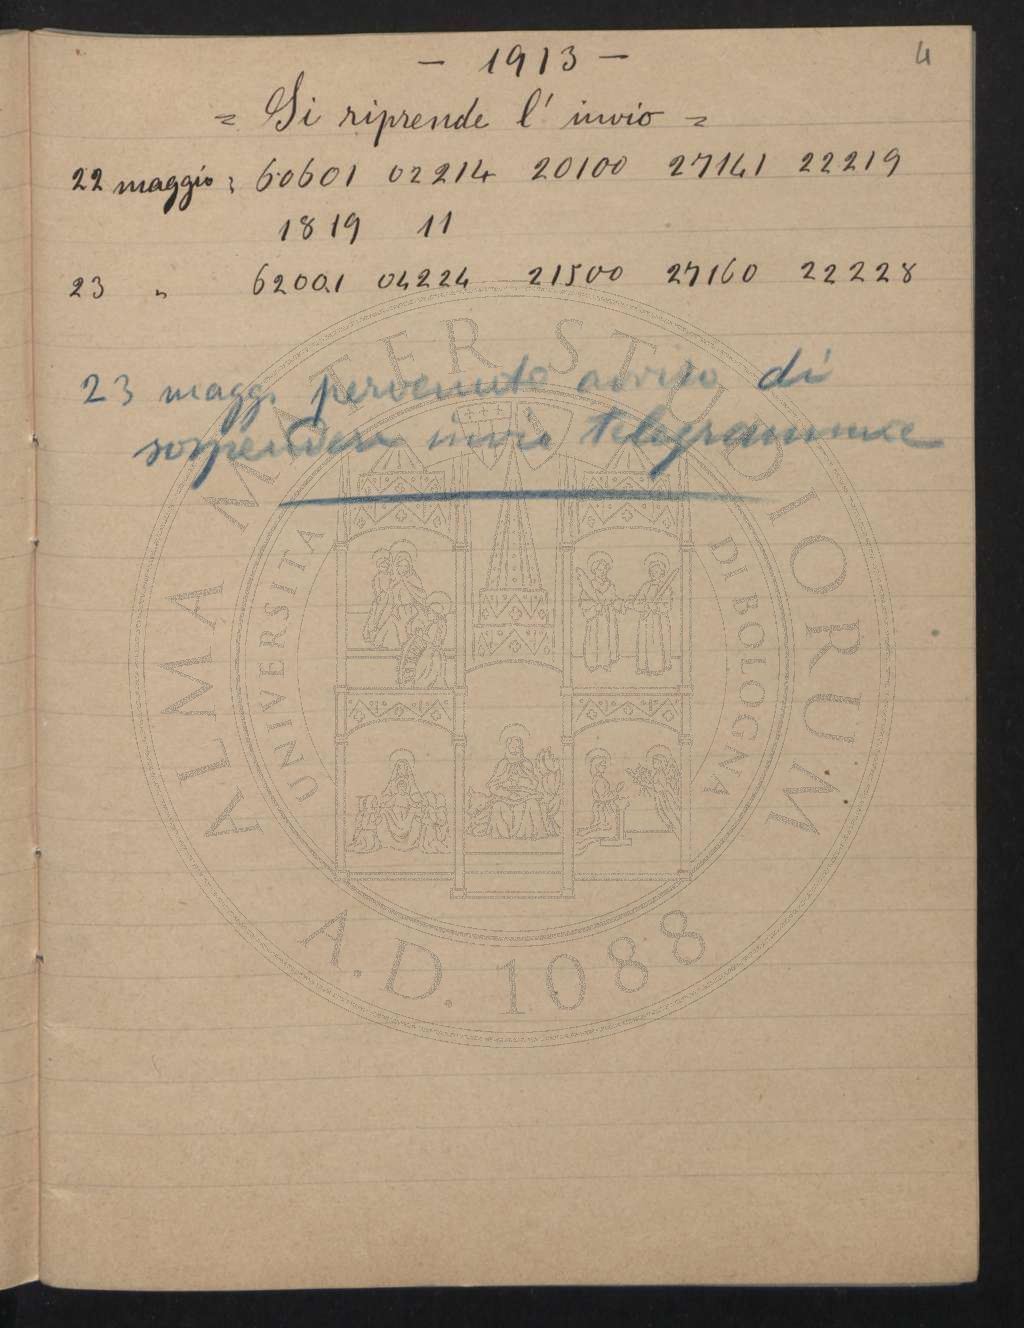 4
- 1913 -
= Si riprende l'invio =
22 maggio: 60601 02214 20100 27141 22219
1819 11
23 " 62001 04224 21500 27160 22228
23 magg. pervenuto avviso di
sospendere invio telegramma
ALMA MATER STUDIORUM
UNIVERSITA DI BOLOGNA
A.D. 1088